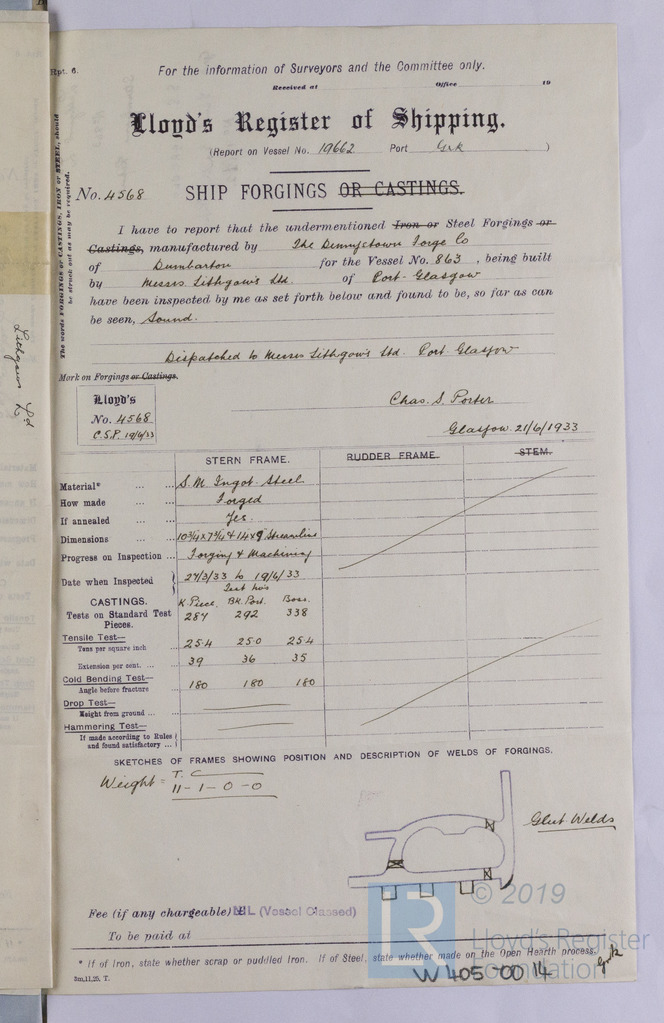 Rpt. 6.
For the information of Surveyors and the Committee only.
Received at Office 19
Lloyd's Register of Shipping.
(Report on Vessel No. 19662 Port Grk )
No. 4568 SHIP FORGINGS OR CASTINGS.
The words FORGINGS or CASTINGS, IRON or STEEL, should
be struck out as may be required.
I have to report that the undermentioned Iron or Steel Forgings or
Castings, manufactured by The Dennystown Forge Co
of Dumbarton for the Vessel No. 863, being built
by Messrs Lithgows Ltd. of Port-Glasgow
have been inspected by me as set forth below and found to be, so far as can
be seen, Sound.
Dispatched to Messrs Lithgows Ltd. Port Glasgow
Mark on Forgings or Castings.
Lloyd's
No. 4568
C.S.P. 19/6/33
Chas. S. Porter
Glasgow 21/6/1933
Lithgows Ld
STERN FRAME. RUDDER FRAME. STEM.
Material* ... ... S.M. Ingot Steel
How made ... ... Forged
If annealed ... ... Yes.
Dimensions ... ... 10¾ x 7¼ & 14 x 9 Streamline
Progress on Inspection ... Forging & Machining
Date when Inspected 27/3/33 to 19/6/33
Test No's
CASTINGS. K. Piece. Bk. Post. Boss.
Tests on Standard Test Pieces. 287 292 338
Tensile Test—
Tons per square inch 25.4 25.0 25.4
Extension per cent. ... ... 39 36 35
Cold Bending Test—
Angle before fracture 180 180 180
Drop Test—
Height from ground ... ...
Hammering Test—
If made according to Rules
and found satisfactory ...
SKETCHES OF FRAMES SHOWING POSITION AND DESCRIPTION OF WELDS OF FORGINGS.
T. C
Weight = 11-1-0-0
Glut Welds
Fee (if any chargeable) NIL (Vessel Classed)
To be paid at
* If of Iron, state whether scrap or puddled Iron. If of Steel, state whether made on the Open Hearth process.
Grk
3m,11,25. T.
W405-0014
© 2019
LR
Lloyd's Register
Foundation